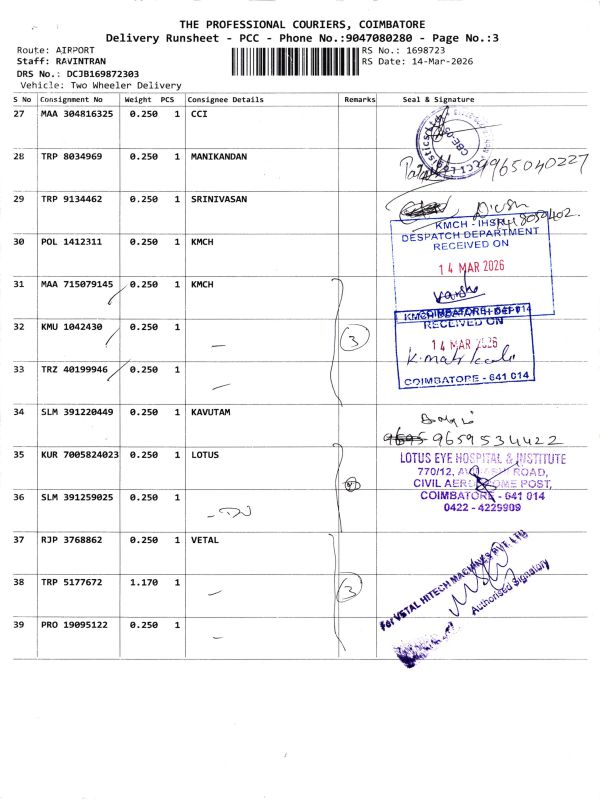 THE PROFESSIONAL COURIERS, COIMBATORE
Delivery Runsheet - PCC - Phone No.:9047080280 - Page No.:3
Route: AIRPORT
RS No.: 1698723
Staff: RAVINTRAN
RS Date: 14-Mar-2026
DRS No.: DCJB169872303
Vehicle: Two Wheeler Delivery
S No Consignment No Weight PCS Consignee Details Remarks Seal & Signature
27 MAA 304816325 0.250 1 CCI
CBE-03
28 TRP 8034969 0.250 1 MANIKANDAN
9965040227
29 TRP 9134462 0.250 1 SRINIVASAN
30 POL 1412311 0.250 1 KMCH
KMCH - IHSR
DESPATCH DEPARTMENT
RECEIVED ON
14 MAR 2026
31 MAA 715079145 0.250 1 KMCH
32 KMU 1042430 0.250 1
3
RECEIVED ON
14 MAR 2026
COIMBATORE - 641 014
33 TRZ 40199946 0.250 1
34 SLM 391220449 0.250 1 KAVUTAM
9695 9659534422
35 KUR 7005824023 0.250 1 LOTUS
LOTUS EYE HOSPITAL & INSTITUTE
770/12, AVINASHI ROAD,
CIVIL AERODROME POST,
COIMBATORE - 641 014
0422 - 4229909
36 SLM 391259025 0.250 1
37 RJP 3768862 0.250 1 VETAL
For VETAL HITECH MACHINES PVT LTD
Authorised Signatory
38 TRP 5177672 1.170 1
3
39 PRO 19095122 0.250 1